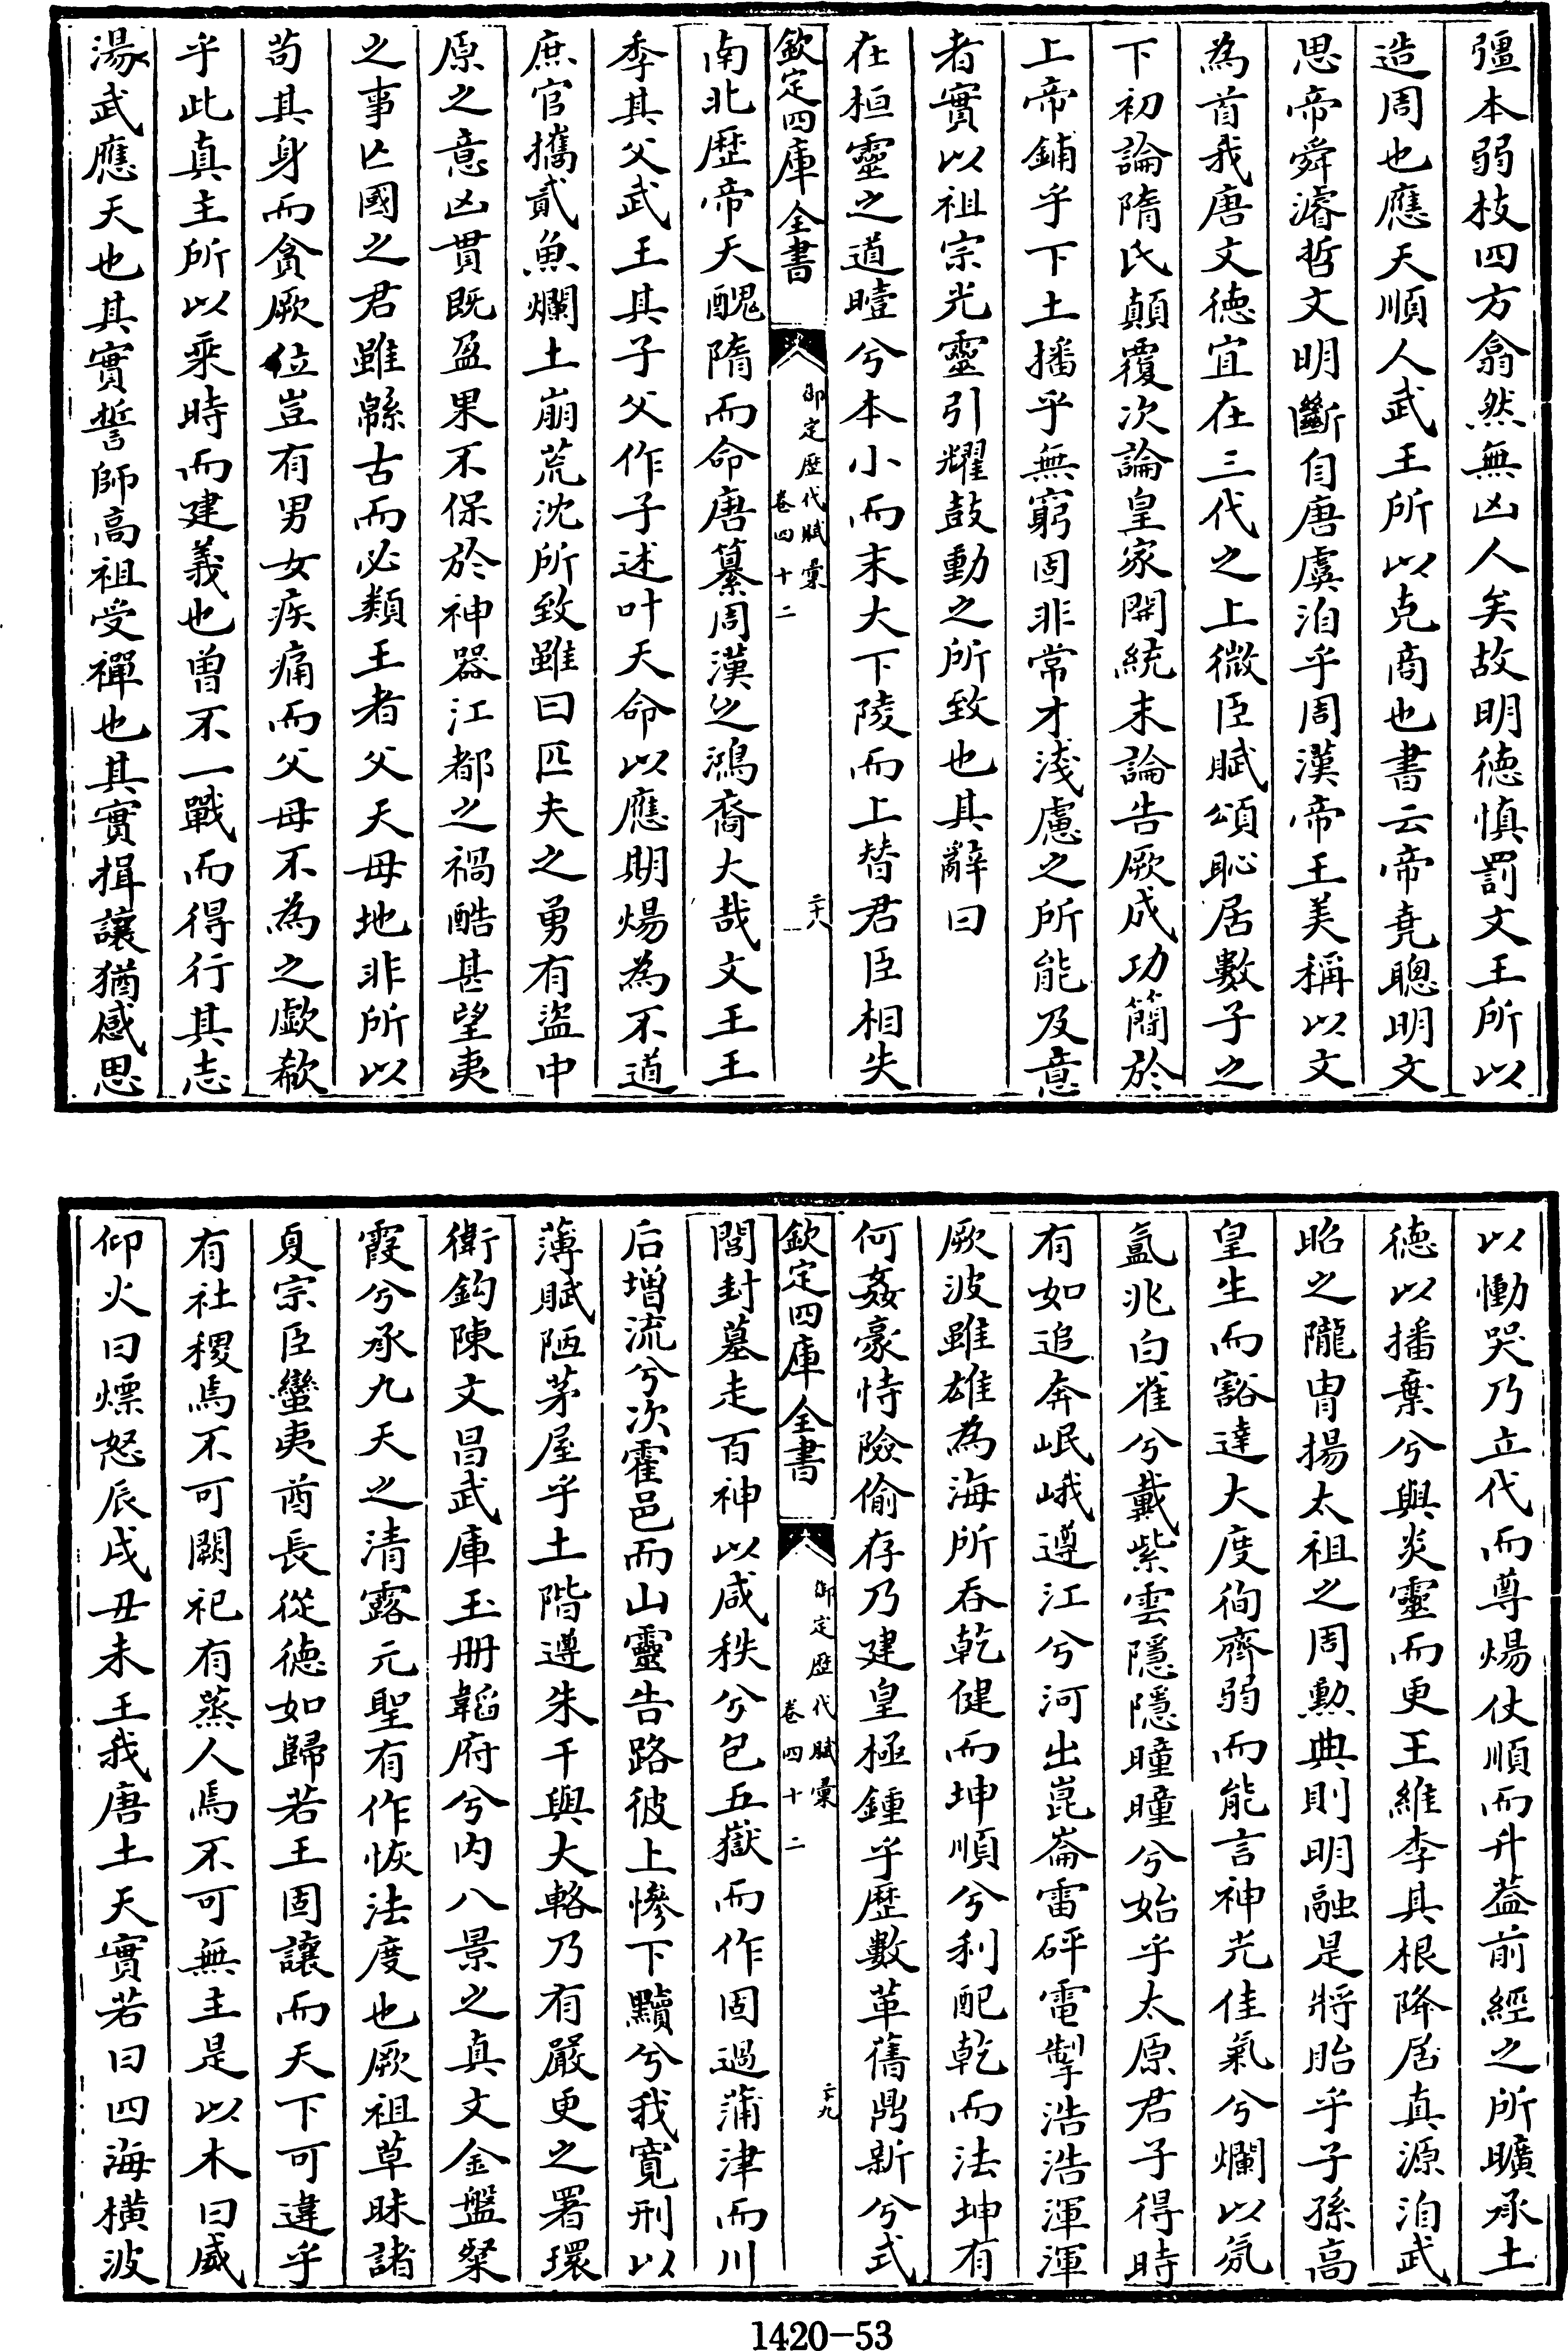 彊本弱枝四方翕然無凶人矣故明徳慎罰文王所以
造周也應天順人武王所以克商也書云帝堯聰明文
思帝舜濬哲文明斷自唐虞洎乎周漢帝王美稱以文
為首我唐文徳宜在三代之上微臣賦頌恥居數子之
下初論隋氏顛覆次論皇家開統末論告厥成功簡於
上帝鋪乎下土播乎無窮固非常才淺慮之所能及意
者實以祖宗光靈引耀鼓動之所致也其辭曰
在桓靈之道曀兮本小而末大下陵而上替君臣相失
欽定四庫全書
御定歴代賦彙
卷四十二
二十八
南北歴帝天醜隋而命唐纂周漢之鴻裔大哉文王王
季其父武王其子父作子述叶天命以應期煬為不道
庶官攜貳魚爛土崩荒沈所致雖曰匹夫之勇有盜中
原之意凶貫既盈果不保於神器江都之禍酷甚望夷
之事亡國之君雖緜古而必類王者父天母地非所以
苟其身而貪厥位豈有男女疾痛而父母不為之歔欷
乎此真主所以乘時而建義也曽不一戰而得行其志
湯武應天也其實誓師高祖受禪也其實揖讓猶感思
以慟哭乃立代而尊煬仗順而升葢前經之所曠承土
徳以播棄兮與炎靈而更王維李其根降居真源洎武
昭之隴冑揚太祖之周勳典則明明融是將貽乎子孫高
皇生而豁達大度徇齊弱而能言神光佳氣兮爛以氛
氳兆白雀兮戴紫雲隱隱曈曈兮始乎太原君子得時
有如追奔岷峨遵江兮河出崑崙雷砰電掣浩浩渾渾
厥波雖雄為海所吞乾健而坤順兮利配乾而法坤有
何姦豪恃險偷存乃建皇極鍾乎歴數革舊鼎新兮式
欽定四庫全書
御定歴代賦彙
卷四十二
二十九
閭封墓走百神以咸秩兮包五嶽而作固過蒲津而川
后增流兮次霍邑而山靈告路彼上慘下黷兮我寛刑以
薄賦陋茅屋乎土階遵朱干與大輅乃有嚴更之署環
衛鈎陳文昌武庫玉册韜府兮内八景之真文金盤粲
霞兮承九天之清露元聖有作恢法度也厥祖草昧諸
夏宗臣蠻夷酋長從徳如歸若王固讓而天下可違乎
有社稷焉不可闕祀有蒸人焉不可無主是以木曰威
仰火曰熛怒辰戌丑未王我唐土天實若曰四海橫波
1420-53